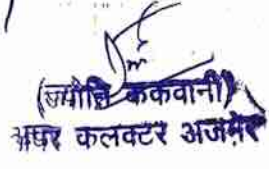 (ज्योति ककवानी)
अपर कलक्टर अजमेर